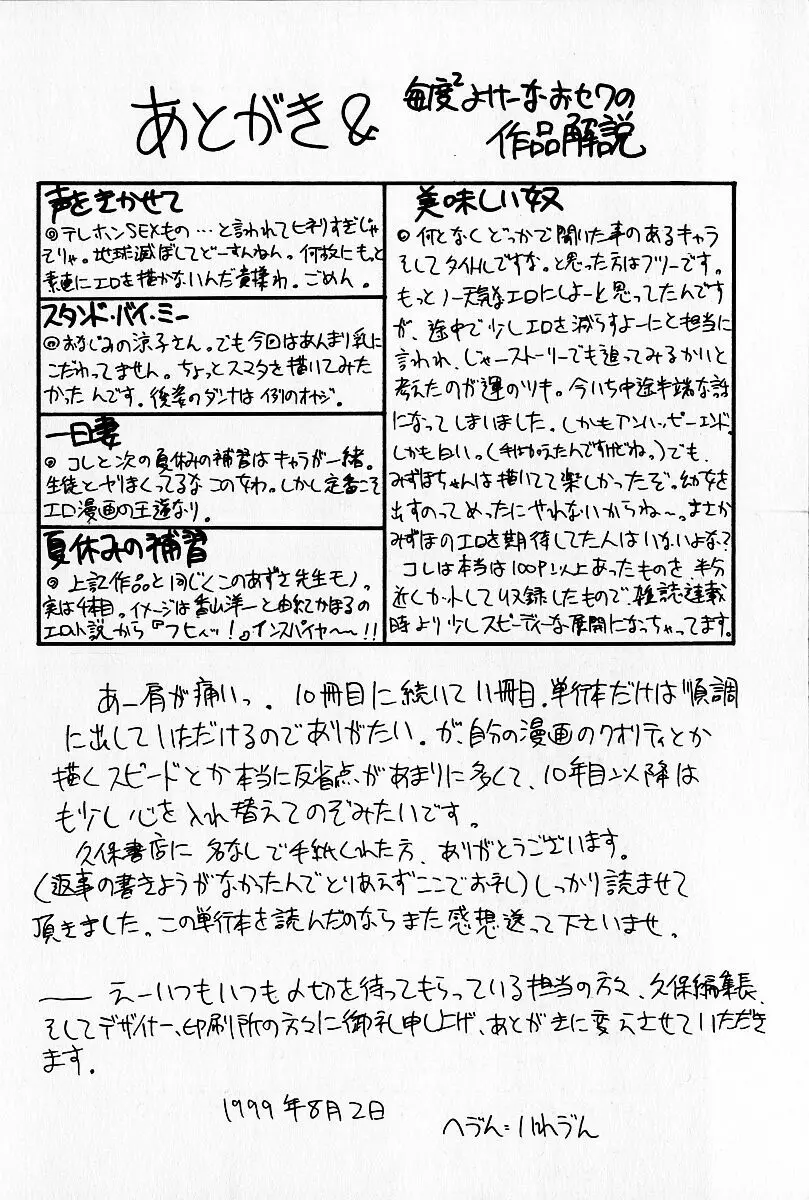 あとがき&
毎度²よけーなおセワの
作品解説
声をきかせて
◎テレホンSEXもの…と言われてヒネリすぎじゃ
そりゃ。地球滅ぼしてどーすんねん。何故にもっと
素直にエロを描かないんだ貴様わ。ごめん。
スタンド・バイ・ミー
◎おなじみの涼子さん。でも今回はあんまり乳に
こだわってません。ちょっとスマタを描いてみた
かったんです。後姿のダンナは例のオヤジ。
一日妻
◎コレと次の夏休みの補習はキャラが一緒。
生徒とヤリまくってるなこの女わ。しかし定番こそ
エロ漫画の王道なり。
夏休みの補習
◎上記作品と同じくこのあずさ先生モノ。
実は4本目。イメージは香山洋一と由紀かほるの
エロ小説から『フヒィッ!』インスパイヤ〜〜!!
美味しい奴
◎何となくどっかで聞いた事のあるキャラ
そしてタイトルですな。と思った方はフツーです。
もっとノー天気なエロにしよーと思ってたんです
が、途中で少しエロを減らすよーにと担当に
言われ、じゃーストーリーでも追ってみるかいと
考えたのが運のツキ。今いち中途半端な話
になってしまいました。しかもアンハッピーエンド。
しかも白い。(手はかえたんですけどね。)でも、
みずほちゃんは描いてて楽しかったぞ。幼女を
出すのってめったにやれないからね〜。まさか
みずほのエロを期待してた人はいないよな?
コレは本当は100P以上あったものを半分
近くカットして収録したもので、雑誌連載
時より少しスピーディーな展開になっちゃってます。
あー肩が痛いっ。10冊目に続いて11冊目。単行本だけは順調
に出していただけるのでありがたい。が、自分の漫画のクオリティとか
描くスピードとか本当に反省点があまりに多くて、10年目以降は
も少し心を入れ替えてのぞみたいです。
久保書店に名なしで手紙くれた方、ありがとうございます。
(返事の書きようがなかったんでとりあえずここでお礼)しっかり読ませて
頂きました。この単行本を読んだのならまた感想送って下さいませ。
―― えーいつもいつも〆切を待ってもらっている担当の方々、久保編集長、
そしてデザイナー、印刷所の方々に御礼申し上げ、あとがきに変えさせていただき
ます。
1999年8月2日
へづん=はれづん